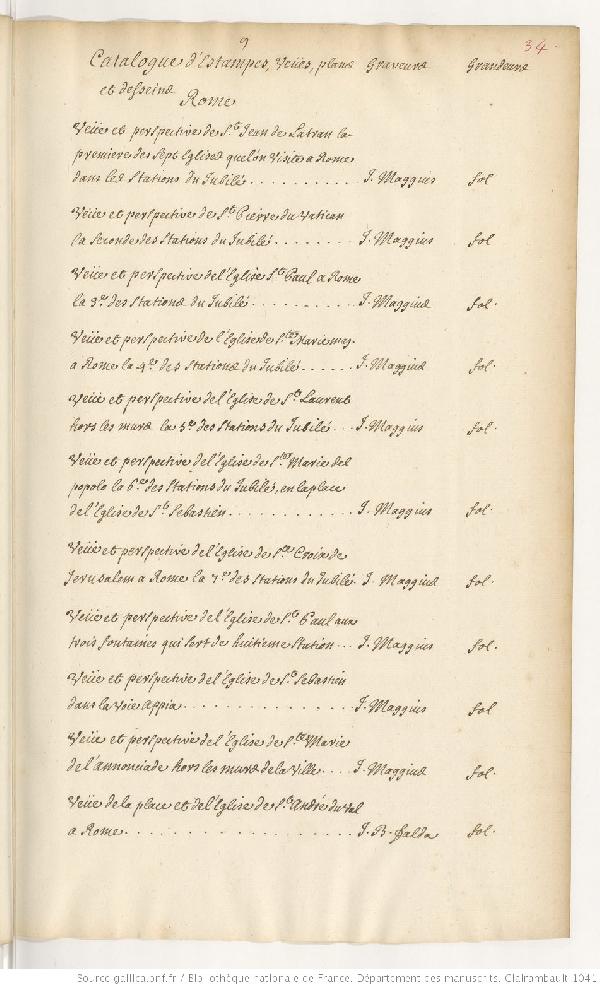 9
34.
Catalogue d'Estampes, Veües, plans Graveurs Grandeurs
et desseins
Rome
Veüe et perspective de St. Jean de Latran la
premiere des Sept Eglises quel'on Visite a Rome
dans les Stations du Jubilé . . . . . . . . . . J. Maggius fol
Veüe et perspective de St. Pierre du Vatican
la Seconde des Stations du Jubilé . . . . . . . J. Maggius fol
Veüe et perspective del'Eglise St. Paul a Rome
la 3e. des Stations du Jubilé . . . . . . . . . J. Maggius fol.
Veüe et perspective de l'Eglise de Ste. Marie maj.
a Rome la 4e. des Stations du Jubilé . . . . . . J. Maggius fol.
Veüe et perspective del'Eglise de St. Laurent
hors les murs la 5e. des Stations du Jubilé . . . J. Maggius fol.
Veüe et perspective del'Eglise de Ste. Marie del
popolo la 6e. des Stations du Jubilé, en la place
de l'Eglise de St. Sebastien . . . . . . . . . . J. Maggius fol.
Veüe et perspective del'Eglise de Ste. Croix de
Jerusalem a Rome la 7e. des Stations du Jubilé. J. Maggius fol.
Veüe et perspective de l'Eglise de St. Paul aux
trois fontaines qui sert de huitieme Station . . . J. Maggius fol.
Veüe et perspective del'Eglise de St. Sebastien
dans la Voie Appia . . . . . . . . . . . . . . J. Maggius fol
Veüe et perspective de l'Eglise de Ste. Marie
de l'annonciade hors les murs de la Ville . . . . J. Maggius fol.
Veüe de la place et de l'Eglise de St. André du Val
a Rome . . . . . . . . . . . . . . . . . . J. B. falda fol.
Source gallica.bnf.fr / Bibliothèque nationale de France. Département des manuscrits. Clairambault 1041